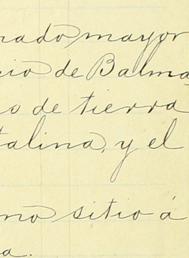 rado mayor
cio de Balma
o de tierra
talina, y el
mo sitio á
a.